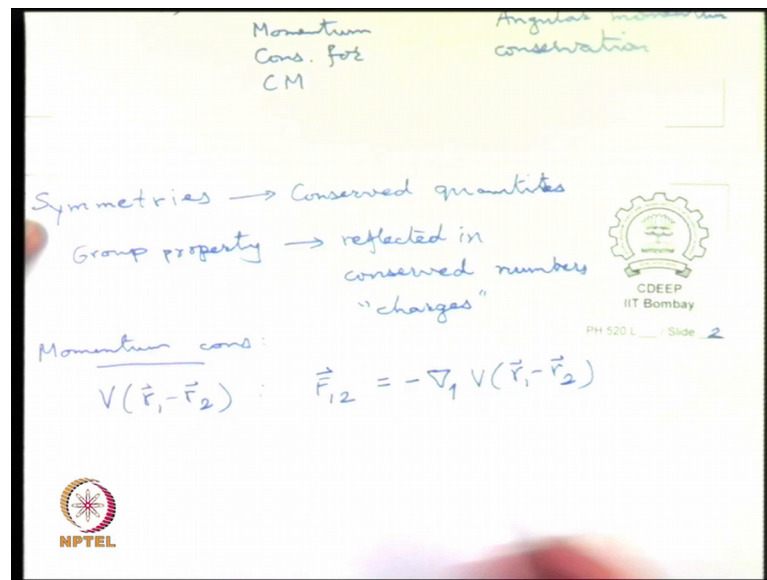 Momentum
Cons. for
CM
Angular momentum
conservation
Symmetries → Conserved quantites
Group property → reflected in
conserved numbers
"charges"
CDEEP
IIT Bombay
PH 520 L___/ Slide 2
Momentum cons:
V(r⃗₁-r⃗₂) : F⃗₁₂ = -∇₁ V(r⃗₁-r⃗₂)
NPTEL